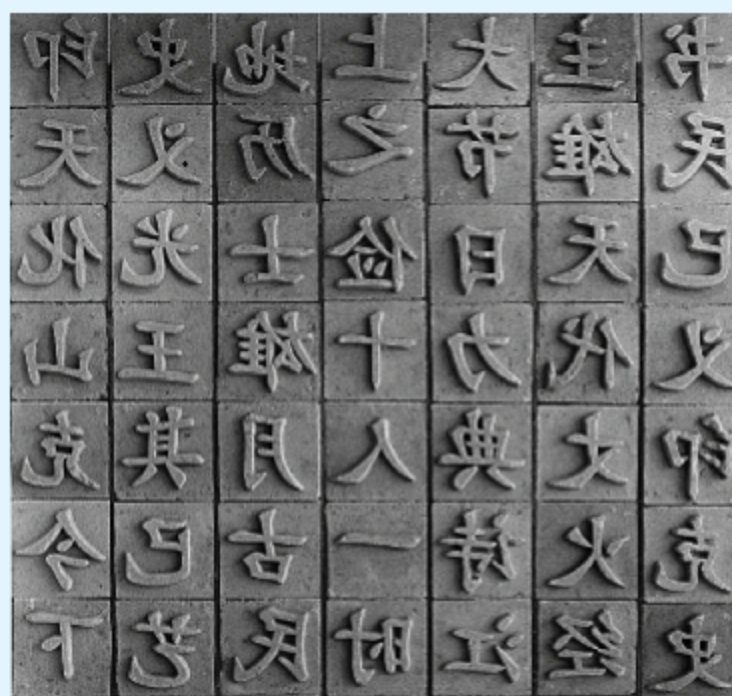 印史地上大主书
天义历之节雄民
化光士俭日天已
山王雄十力代义
克其月人典文印
今已古一诗火克
下艺民时江经史